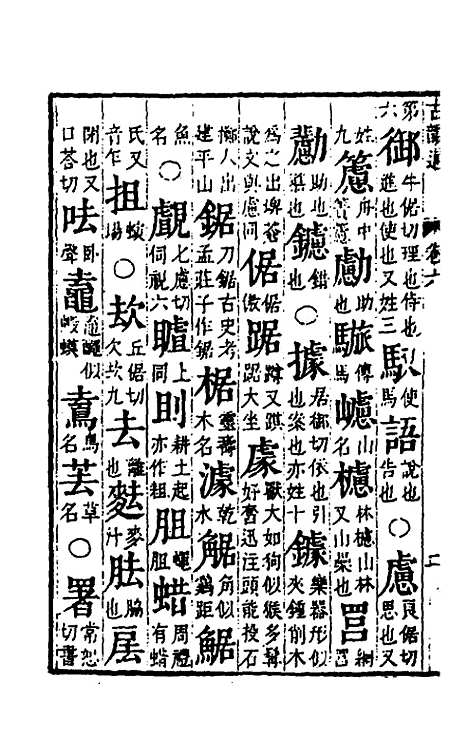 御牛倨切理也侍也進也使也又姓三馭使馬語說也告也○慮良倨切思也又
姓九𥳑舟中勴助也𩧫傳馬㠠山名櫖林櫖山林又山柴也罟
勴助也鑢錯也○據居御切依也引也案也亦姓十鐻樂器形似夾鍾削木
為之出埤蒼說文與虡同倨倨傲踞蹲又踑踞大坐豦獸大如狗似猴多髯好奮迅注頭能投石
擲人出建平山鋸刀鋸古史考孟莊子作鋸椐靈壽木名澽乾水䱟角似雞距鋸
魚名○覻七慮切伺視六䁦上同耡耕土起亦作耝胆蠅胆蜡周禮有蜡
氏又音乍抯○坎丘倨切欠坎九去離也麮麥汁胠脇也㕇
閉也又口荅切呿臥聲鼁鼀䵶似蝦蟆鳥名芸草名○署常恕切書